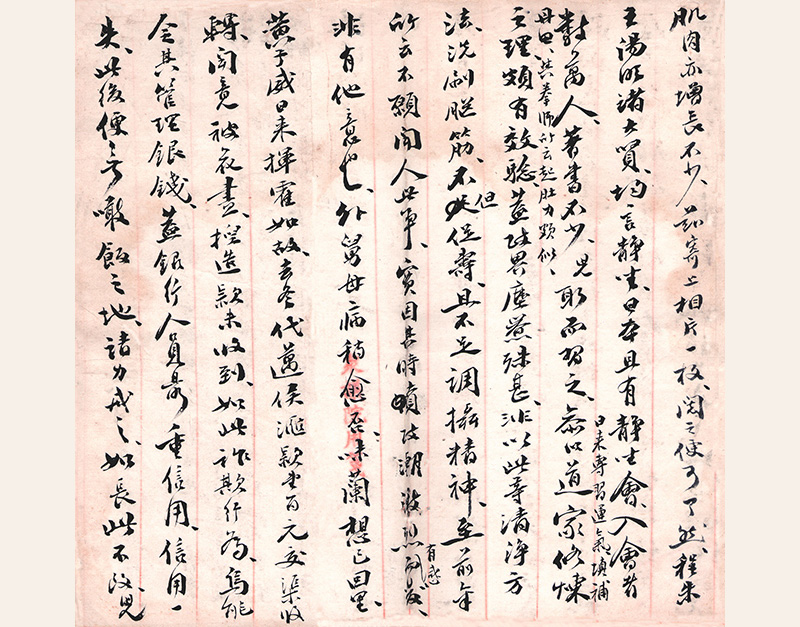 肌肉亦增長不少、茲寄上相片一枚、閱之便可了然、程朱
王湯諸大賢、均言靜坐、日本且有靜坐會、入會者
數萬人、著書不少、兒取而習之、參以道家修煉
日來專習運氣填補
丹田、與拳師所云起肚力頗似、
之理頗有效驗、蓋政界塵囂殊甚、非以此等清淨方
法、洗刷腦筋、不但促壽、且不足調攝精神、至前年
所云不願聞人世事、實因其時政潮激烈、有感
非有他意也、外舅母病稍愈否、朱蘭想已回里、
黃于威日來揮霍如故、去冬代邁侯滙款壹百元交渠收
轉、聞竟被花盡、揑造款未收到、如此詐欺行為、烏能
令其管理銀錢、蓋銀行人員最重信用、信用一
失、此後便無噉飯之地、請力戒之、如長此不改、兒